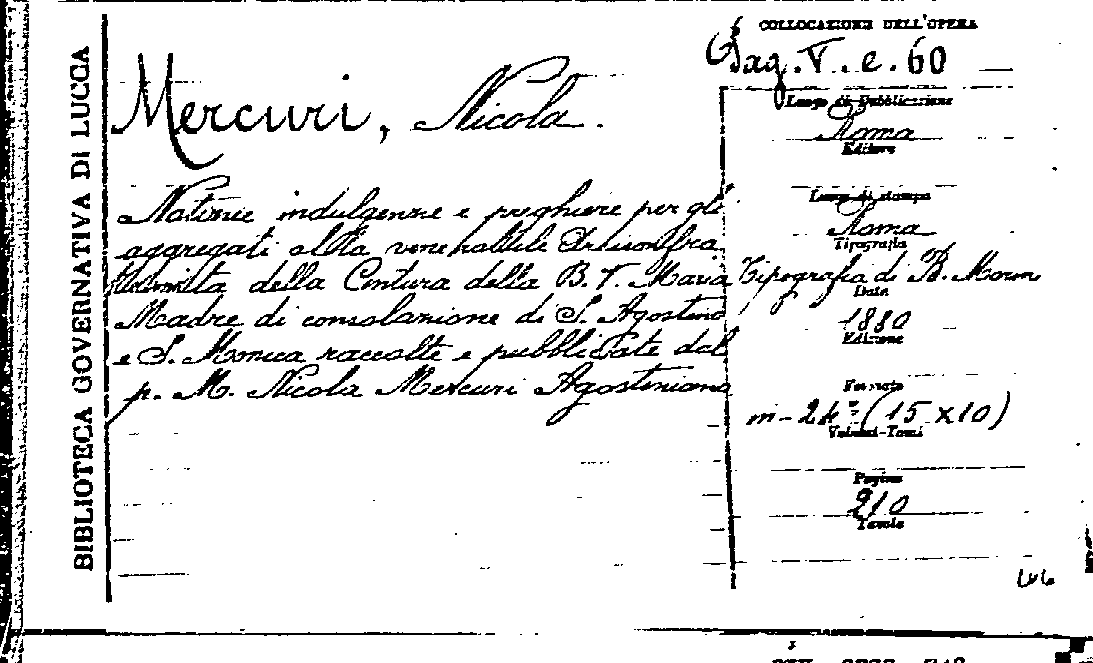 BIBLIOTECA GOVERNATIVA DI LUCCA
Mercuri, Nicola.
Notizie indulgenze e preghiere per gli
aggregati alla venerabile Arciconfra
ternita della Cintura della B. V. Maria
Madre di consolazione di S. Agostino
e S. Monica raccolte e pubblicate dal
p. M. Nicola Mercuri Agostiniano
COLLOCAZIONE DELL'OPERA
Pag. V. e. 60
Luogo di Pubblicazione
Roma
Editore
Luogo di stampa
Roma
Tipografia
Tipografia di B.
Data
1880
Edizione
Formato
in-24º (15 x 10)
Volumi-Tomi
Pagine
210
Tavole